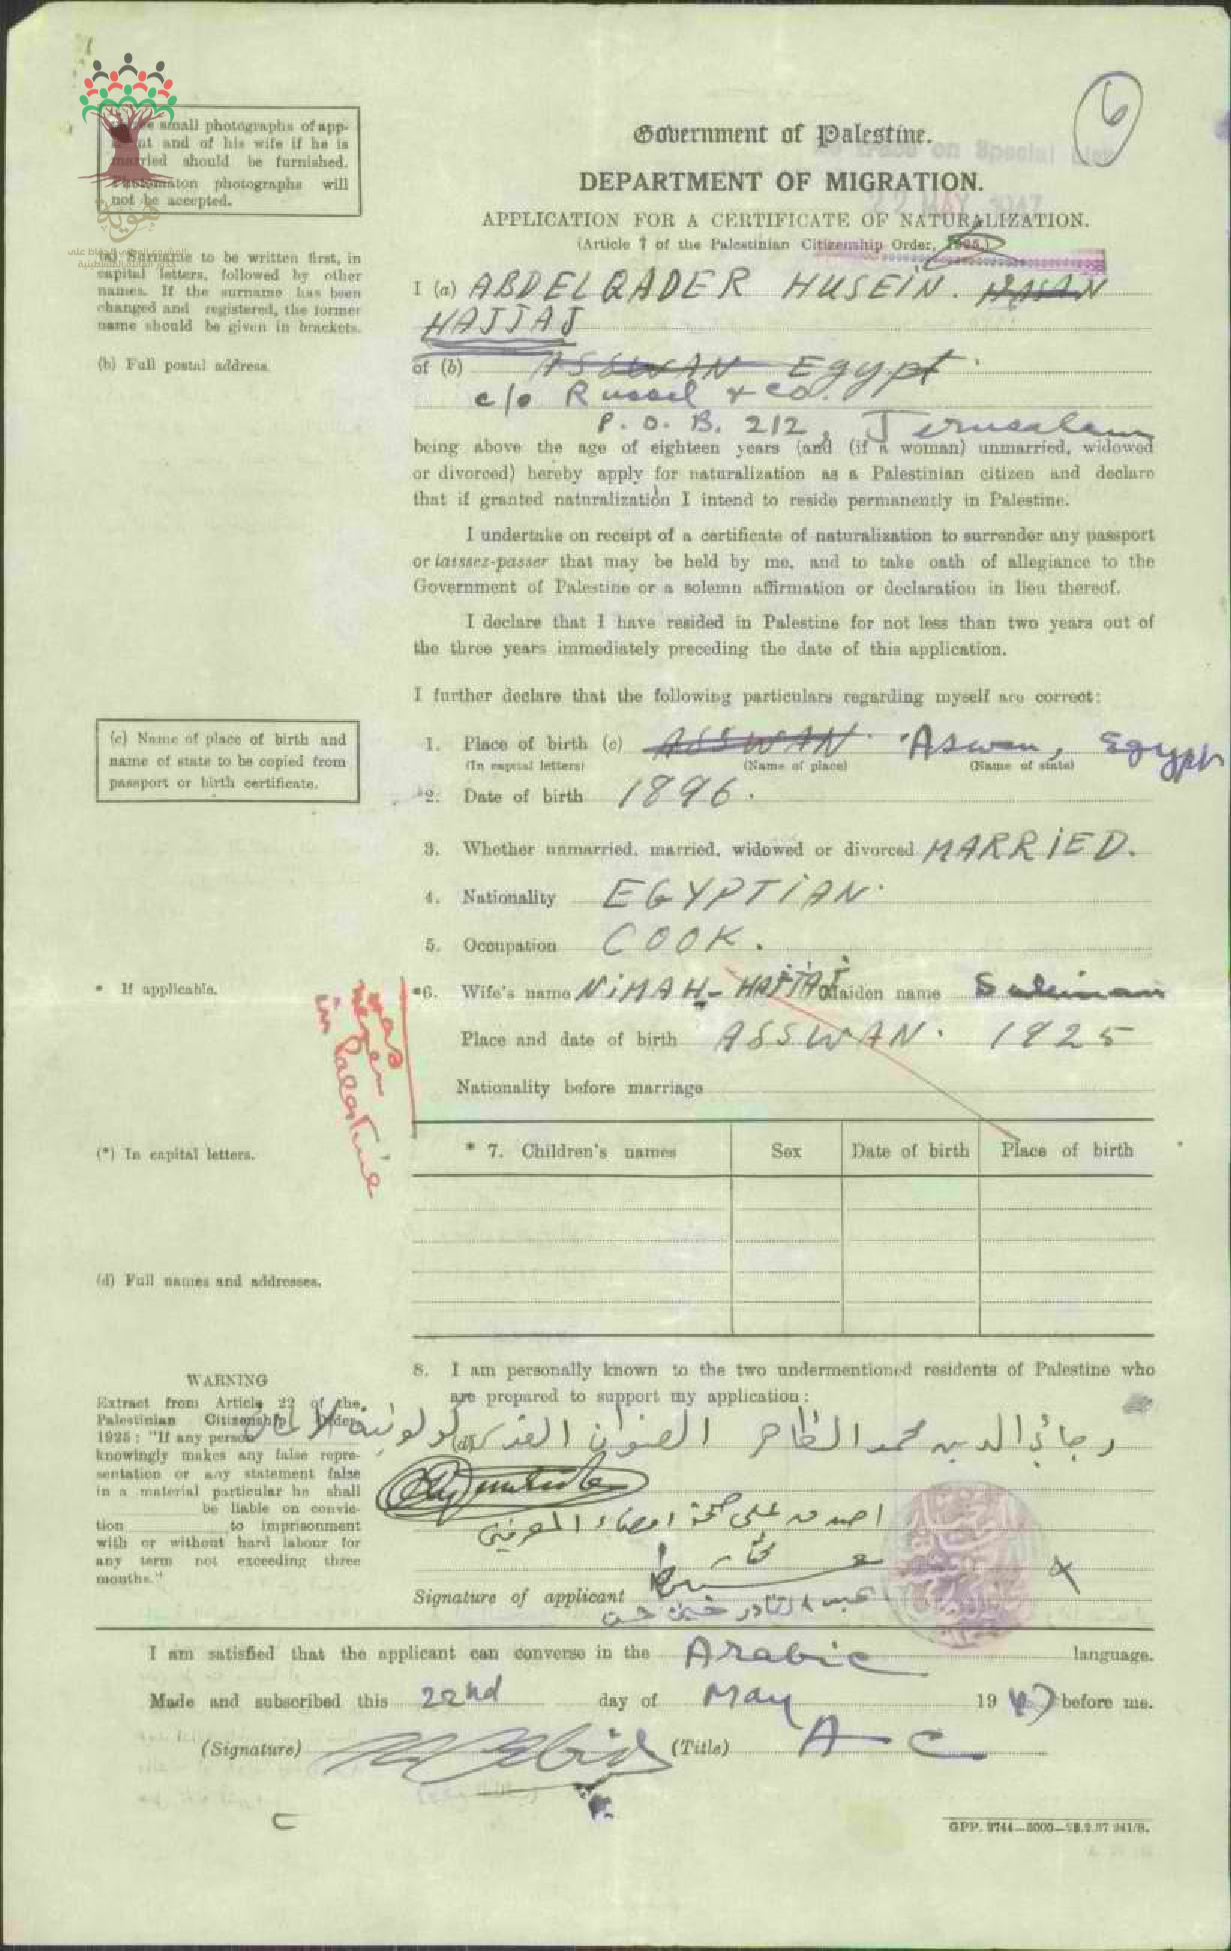 6
Three small photographs of app-
licant and of his wife if he is
married should be furnished.
Photomaton photographs will
not be accepted.
هوية
Government of Palestine.
No trace on Special List
22 MAY 1947
DEPARTMENT OF MIGRATION.
APPLICATION FOR A CERTIFICATE OF NATURALIZATION.
(Article 7 of the Palestinian Citizenship Order, 1925.)
(a) Surname to be written first, in
capital letters, followed by other
names. If the surname has been
changed and registered, the former
name should be given in brackets.
I (a) ABDELQADER HUSEIN. HASAN
HAJJAJ
(b) Full postal address.
of (b) ASSWAN Egypt
c/o Russel & co.
P. O. B. 212, Jerusalem
being above the age of eighteen years (and (if a woman) unmarried, widowed
or divorced) hereby apply for naturalization as a Palestinian citizen and declare
that if granted naturalization I intend to reside permanently in Palestine.
I undertake on receipt of a certificate of naturalization to surrender any passport
or laissez-passer that may be held by me, and to take oath of allegiance to the
Government of Palestine or a solemn affirmation or declaration in lieu thereof.
I declare that I have resided in Palestine for not less than two years out of
the three years immediately preceding the date of this application.
I further declare that the following particulars regarding myself are correct:
(c) Name of place of birth and
name of state to be copied from
passport or birth certificate.
1. Place of birth (c) ASSWAN Aswan, Egypt
(In capital letters) (Name of place) (Name of state)
2. Date of birth 1896.
3. Whether unmarried, married, widowed or divorced MARRIED.
4. Nationality EGYPTIAN.
5. Occupation COOK.
* If applicable.
*6. Wife's name NIMAH - HAJJAJ Maiden name Suleiman
Place and date of birth ASSWAN. 1925
Nationality before marriage
was never in Palestine
(*) In capital letters.
* 7. Children's names Sex Date of birth Place of birth
(d) Full names and addresses.
8. I am personally known to the two undermentioned residents of Palestine who
are prepared to support my application:
WARNING
Extract from Article 22 of the
Palestinian Citizenship Order,
1925: "If any person
knowingly makes any false repre-
sentation or any statement false
in a material particular he shall
be liable on convic-
tion to imprisonment
with or without hard labour for
any term not exceeding three
months."
(d) رجائي الدين محمد الظاهر العنوان القدس
اصدق على صحة امضاء المعرفين
مختار
Signature of applicant عبد القادر حسين حسن
I am satisfied that the applicant can converse in the Arabic language.
Made and subscribed this 22nd day of May 1947 before me.
(Signature) (Title) A C
GPP. 9744—5000—28.9.37 241/8.